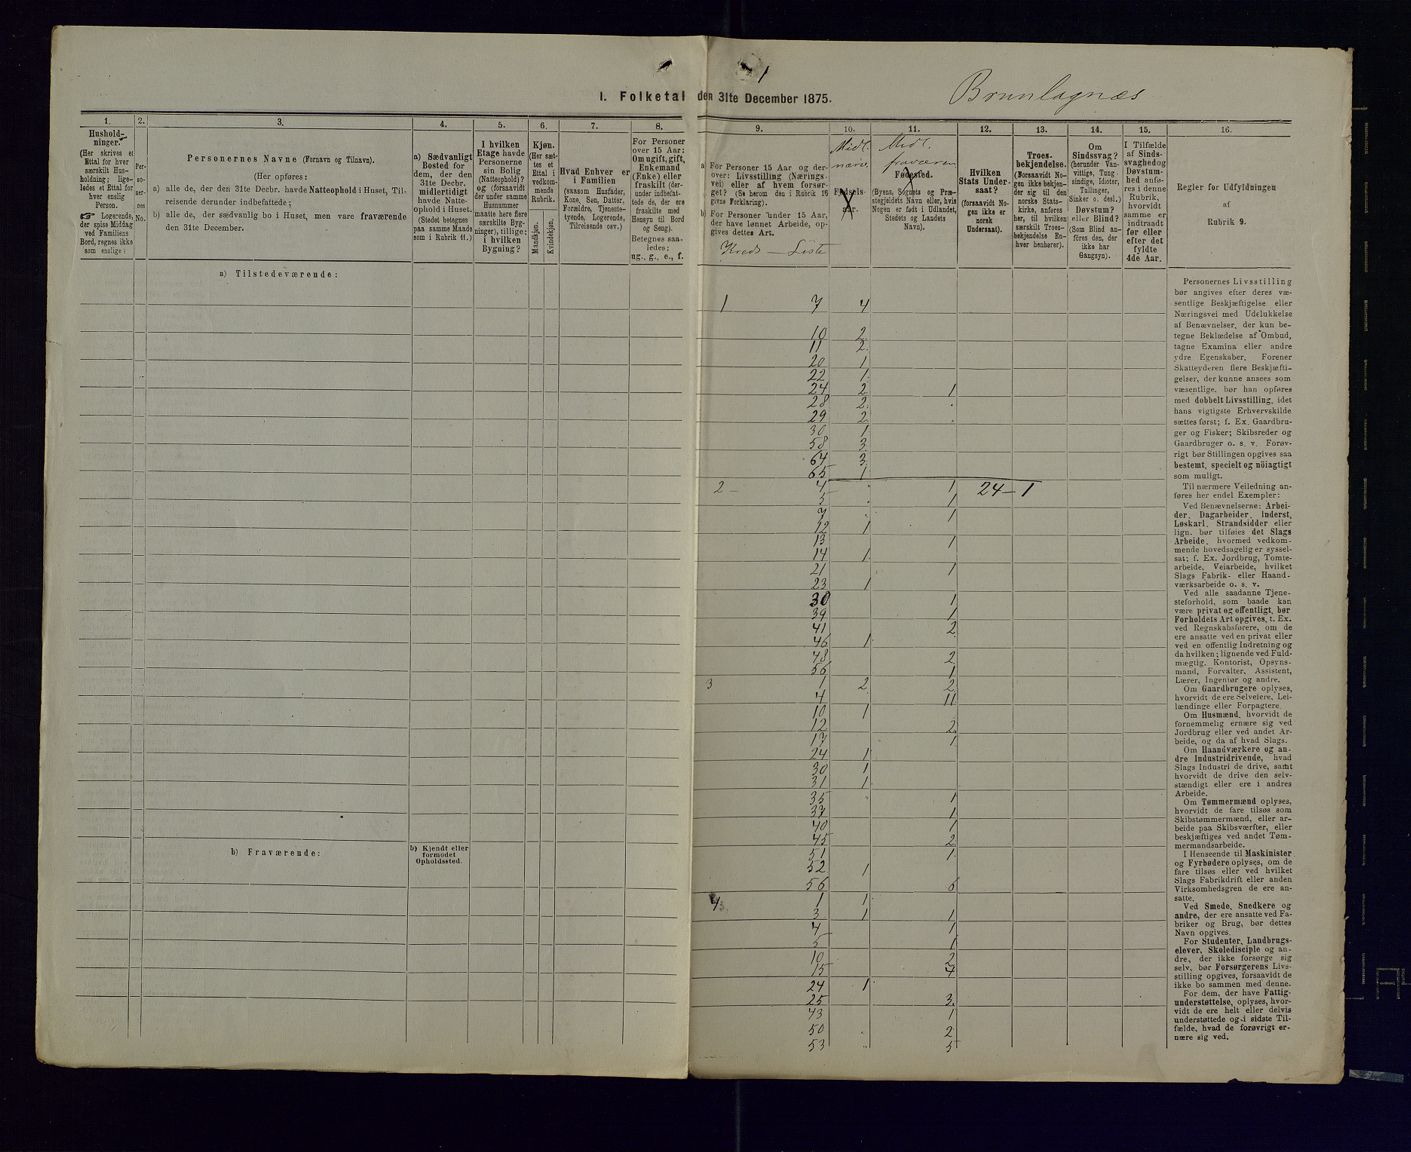 1
I. Folketal den 31te December 1875.
Brunlagnæs
1.
2.
3.
4.
5.
6.
7.
8.
9.
10.
11.
12.
13.
14.
15.
16.
Hushold-
ninger.
(Her skrives et
Ettal for hver
særskilt Hus-
holdning; lige-
ledes et Ettal for
hver enslig
Person.
☞ Logerende,
der spise Middag
ved Familiens
Bord, regnes ikke
som enslige).
Per-
so-
ner-
nes
No.
Personernes Navne (Fornavn og Tilnavn).
(Her opføres:
a) alle de, der den 31te Decbr. havde Natteophold i Huset, Til-
reisende derunder indbefattede;
b) alle de, der sædvanlig bo i Huset, men vare fraværende
den 31te December.
a) Sædvanligt
Bosted for
dem, der den
31te Decbr.
midlertidigt
havde Natte-
ophold i Huset.
(Stedet betegnes
paa samme Maade
som i Rubrik 11.)
I hvilken
Etage havde
Personerne
sin Bolig
(Natteophold)?
og (forsaavidt
der under samme
Husnummer
maatte høre flere
særskilte Byg-
ninger), tillige:
i hvilken
Bygning?
Kjøn.
(Her sæt-
tes et
Ettal i
vedkom-
mende
Rubrik.
Mandkjøn.
Kvindekjøn.
Hvad Enhver er
i Familien
(saasom Husfader,
Kone, Søn, Datter,
Forældre, Tjeneste-
tyende, Logerende,
Tilreisende osv.)
For Personer
over 15 Aar:
Om ugift, gift,
Enkemand
(Enke) eller
fraskilt (der-
under indbefat-
tede de, der ere
fraskilte med
Hensyn til Bord
og Seng).
Betegnes saa-
ledes:
ug., g., e., f.
a For Personer 15 Aar og der-
over: Livsstilling (Nærings-
vei) eller af hvem forsør-
get? (Se herom den i Rubrik 16
givne Forklaring).
b For Personer under 15 Aar,
der have lønnet Arbeide, op-
gives dettes Art.
Kreds — Liste
Midl.
nærv.
Fødsels-
aar.
Midl.
fraværen
Fødested.
(Byens, Sognets og Præ-
stegjeldets Navn eller, hvis
Nogen er født i Udlandet,
Stedets og Landets
Navn).
Hvilken
Stats Under-
saat?
(forsaavidt No-
gen ikke er
norsk
Undersaat).
Troes-
bekjendelse.
(Forsaavidt No-
gen ikke bekjen-
der sig til den
norske Stats-
kirke, anføres
her, til hvilken
særskilt Troes-
bekjendelse En-
hver henhører).
Om
Sindssvag?
(herunder Van-
vittige, Tung-
sindige, Idioter,
Tullinger,
Sinker o. desl.)
Døvstum?
eller Blind?
(Som Blind an-
føres den, der
ikke har
Gangsyn).
I Tilfælde
af Sinds-
svaghed og
Døvstum-
hed anfø-
res i denne
Rubrik,
hvorvidt
samme er
indtraadt
før eller
efter det
fyldte
4de Aar.
Regler før Udfyldningen
af
Rubrik 9.
a) Tilstedeværende:
b) Fraværende:
b) Kjendt eller
formodet
Opholdssted.
1 7 4
10 2
11 2
20 1
22 1
24 2 1
28 2
29 2
30 1
58 3
64 3
65 1
2 — 4 1 24 — 1
5 1
7 1
12 1
13 1
14 1
21 1
23 1
30 1
39 1
41 2
46 1
48 2
56 1
3 1 2 2
4 11
10 1
12 2
17 1
24 1
30 1
31 1
35 1
37 1
40 1
45 2
51 1
52 1
56 6
4 1 1
3 1 1
4 1
5 1
10 2
15 4
24 1
25 3
43 1
50 2
53 5
Personernes Livsstilling
bør angives efter deres væ-
sentlige Beskjæftigelse eller
Næringsvei med Udelukkelse
af Benævnelser, der kun be-
tegne Beklædelse af Ombud,
tagne Examina eller andre
ydre Egenskaber. Forener
Skatteyderen flere Beskjæfti-
gelser, der kunne ansees som
væsentlige, bør han opføres
med dobbelt Livsstilling, idet
hans vigtigste Erhvervskilde
sættes først; f. Ex. Gaardbru-
ger og Fisker; Skibsreder og
Gaardbruger o. s. v. Forøv-
rigt bør Stillingen opgives saa
bestemt, specielt og nöiagtigt
som muligt.
Til nærmere Veiledning an-
føres her endel Exempler:
Ved Benævnelserne: Arbei-
der, Dagarbeider, Inderst,
Løskarl, Strandsidder eller
lign. bør tilføies det Slags
Arbeide, hvormed vedkom-
mende hovedsagelig er syssel-
sat; f. Ex. Jordbrug, Tomte-
arbeide, Veiarbeide, hvilket
Slags Fabrik- eller Haand-
værksarbeide o. s. v.
Ved alle saadanne Tjene-
steforhold, som baade kan
være privat og offentligt, bør
Forholdets Art opgives, t. Ex.
ved Regnskabsførere, om de
ere ansatte ved en privat eller
ved en offentlig Indretning og
da hvilken; lignende ved Fuld-
mægtig, Kontorist, Opsyns-
mand, Forvalter, Assistent,
Lærer, Ingeniør og andre.
Om Gaardbrugere oplyses,
hvorvidt de ere Selveiere, Lei-
lændinge eller Forpagtere.
Om Husmænd, hvorvidt de
fornemmelig ernære sig ved
Jordbrug eller ved andet Ar-
beide, og da af hvad Slags.
Om Haandværkere og an-
dre Industridrivende, hvad
Slags Industri de drive, samt
hvorvidt de drive den selv-
stændigt eller ere i andres
Arbeide.
Om Tømmermænd oplyses,
hvorvidt de fare tilsøs som
Skibstømmermænd, eller ar-
beide paa Skibsværfter, eller
beskjæftiges ved andet Tøm-
mermandsarbeide.
I Henseende til Maskinister
og Fyrbødere oplyses, om de
fare tilsøs eller ved hvilket
Slags Fabrikdrift eller anden
Virksomhedsgren de ere an-
satte.
Ved Smede, Snedkere og
andre, der ere ansatte ved Fa-
briker og Brug, bør dettes
Navn opgives.
For Studenter, Landbrugs-
elever, Skoledisciple og an-
dre, der ikke forsørge sig
selv, bør Forsørgerens Livs-
stilling opgives, forsaavidt de
ikke bo sammen med denne.
For dem, der have Fattig-
understøttelse, oplyses, hvor-
vidt de ere helt eller delvis
understøttede og i sidste Til-
fælde, hvad de forøvrigt er-
nære sig ved.